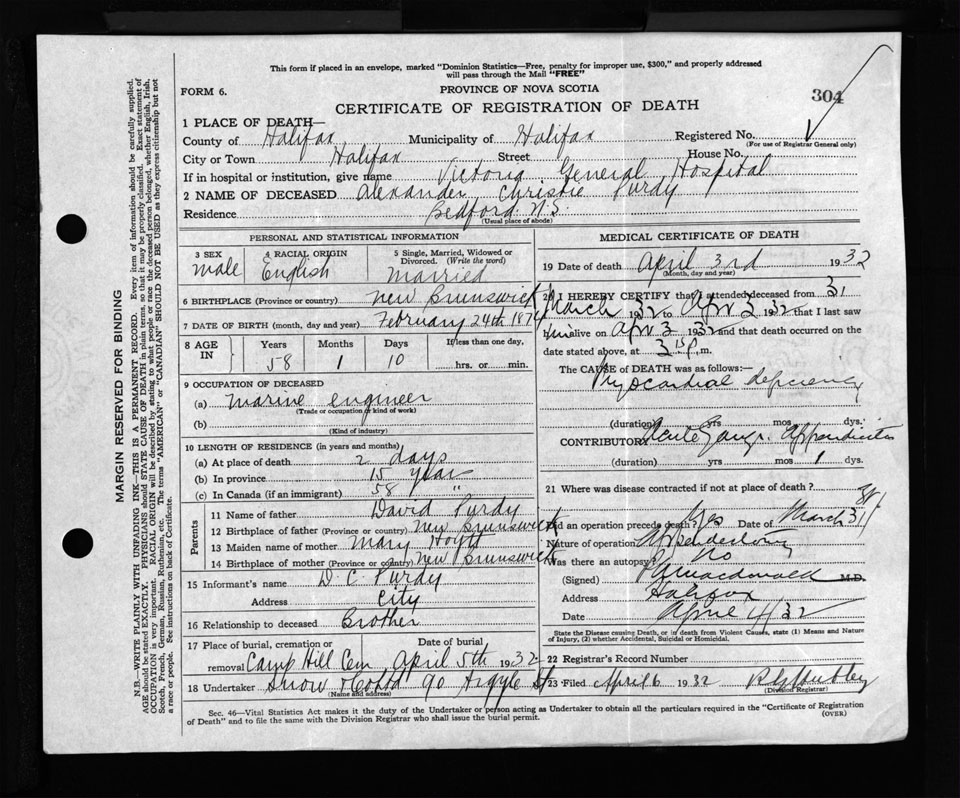 This form if placed in an envelope, marked "Dominion Statistics—Free, penalty for improper use, $300," and properly addressed
will pass through the Mail "FREE"
FORM 6.
PROVINCE OF NOVA SCOTIA
304
CERTIFICATE OF REGISTRATION OF DEATH
1 PLACE OF DEATH—
County of Halifax Municipality of Halifax Registered No.
(For use of Registrar General only)
City or Town Halifax Street House No.
If in hospital or institution, give name Victoria General Hospital
2 NAME OF DECEASED Alexander Christie Purdy
Residence Bedford N.S.
(Usual place of abode)
PERSONAL AND STATISTICAL INFORMATION
3 SEX 4 RACIAL ORIGIN 5 Single, Married, Widowed or
Divorced. (Write the word)
male English Married
6 BIRTHPLACE (Province or country) New Brunswick
7 DATE OF BIRTH (month, day and year) February 24th 1874
8 AGE IN Years Months Days If less than one day,
58 1 10 hrs. or min.
9 OCCUPATION OF DECEASED
(a) Marine Engineer
(Trade or occupation or kind of work)
(b)
(Kind of industry)
10 LENGTH OF RESIDENCE (in years and months)
(a) At place of death 2 days
(b) In province 15 year
(c) In Canada (if an immigrant) 58 "
Parents
11 Name of father David Purdy
12 Birthplace of father (Province or country) New Brunswick
13 Maiden name of mother Mary Hoyt
14 Birthplace of mother (Province or country) New Brunswick
15 Informant's name D. C. Purdy
Address City
16 Relationship to deceased Brother
17 Place of burial, cremation or Date of burial
removal Camp Hill Cem April 5th 1932
18 Undertaker Snow & Co Ltd 90 Argyle St
(Name and address)
MEDICAL CERTIFICATE OF DEATH
19 Date of death April 3rd 1932
(Month, day and year)
20 I HEREBY CERTIFY that I attended deceased from 31
March 1932 to Apr 3 1932 that I last saw
him alive on Apr 3 1932 and that death occurred on the
date stated above, at 3 15 p. m.
The CAUSE of DEATH was as follows:—
Myocardial deficiency
(duration) yrs mos dys.
CONTRIBUTORY Acute Gangr. Appendicitis
(duration) yrs mos 1 dys.
21 Where was disease contracted if not at place of death?
Did an operation precede death? Yes Date of March 31/
Nature of operation Appendectomy
Was there an autopsy? No
(Signed) Macdonald M.D.
Address Halifax
Date April 4/32
State the Disease causing Death, or in death from Violent Causes, state (1) Means and Nature
of Injury, (2) whether Accidental, Suicidal or Homicidal.
22 Registrar's Record Number
23 Filed April 6 1932
(Division Registrar)
Sec. 46—Vital Statistics Act makes it the duty of the Undertaker or person acting as Undertaker to obtain all the particulars required in the "Certificate of Registration
of Death" and to file the same with the Division Registrar who shall issue the burial permit. (OVER)
MARGIN RESERVED FOR BINDING
N.B.—WRITE PLAINLY WITH UNFADING INK—THIS IS A PERMANENT RECORD. Every item of information should be carefully supplied.
AGE should be stated EXACTLY. PHYSICIANS should STATE CAUSE OF DEATH in plain terms, so that it may be properly classified. Exact statement of
OCCUPATION is very important. RACIAL ORIGIN will be described by stating to what people or race the deceased person belonged, whether English, Irish,
Scotch, French, German, Russian, Ruthenian, etc. The terms "AMERICAN" or "CANADIAN" SHOULD NOT BE USED as they express citizenship but not
a race or people. See instructions on back of Certificate.